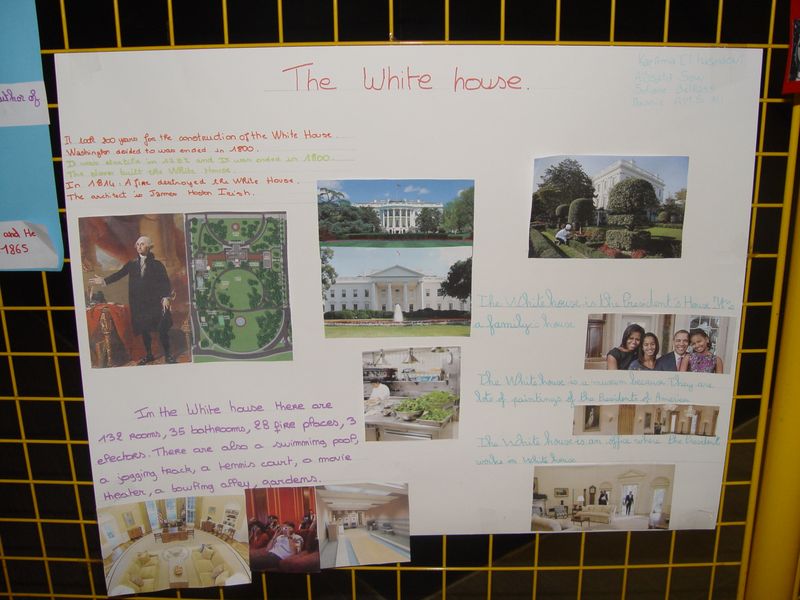 The White house.
Karima El
It took 100 years for the construction of the White House.
Washington decided to was ended in 1800.
It was in 1792 and It was ended in 1800.
The slaves built the White House.
In 1814: A fire destroyed the White House.
The architect is James Hoban Irish.
In the White house there are
132 rooms, 35 bathrooms, 28 fire places, 3
elevators. There are also a swimming pool,
a jogging track, a tennis court, a movie
theater, a bowling alley, gardens.
The White house is the President's House. It's
a family house
The White house is a museum because They are
lots of paintings of the Presidents of America
The White house is an office where the President
works in White house
author of
and He
1865